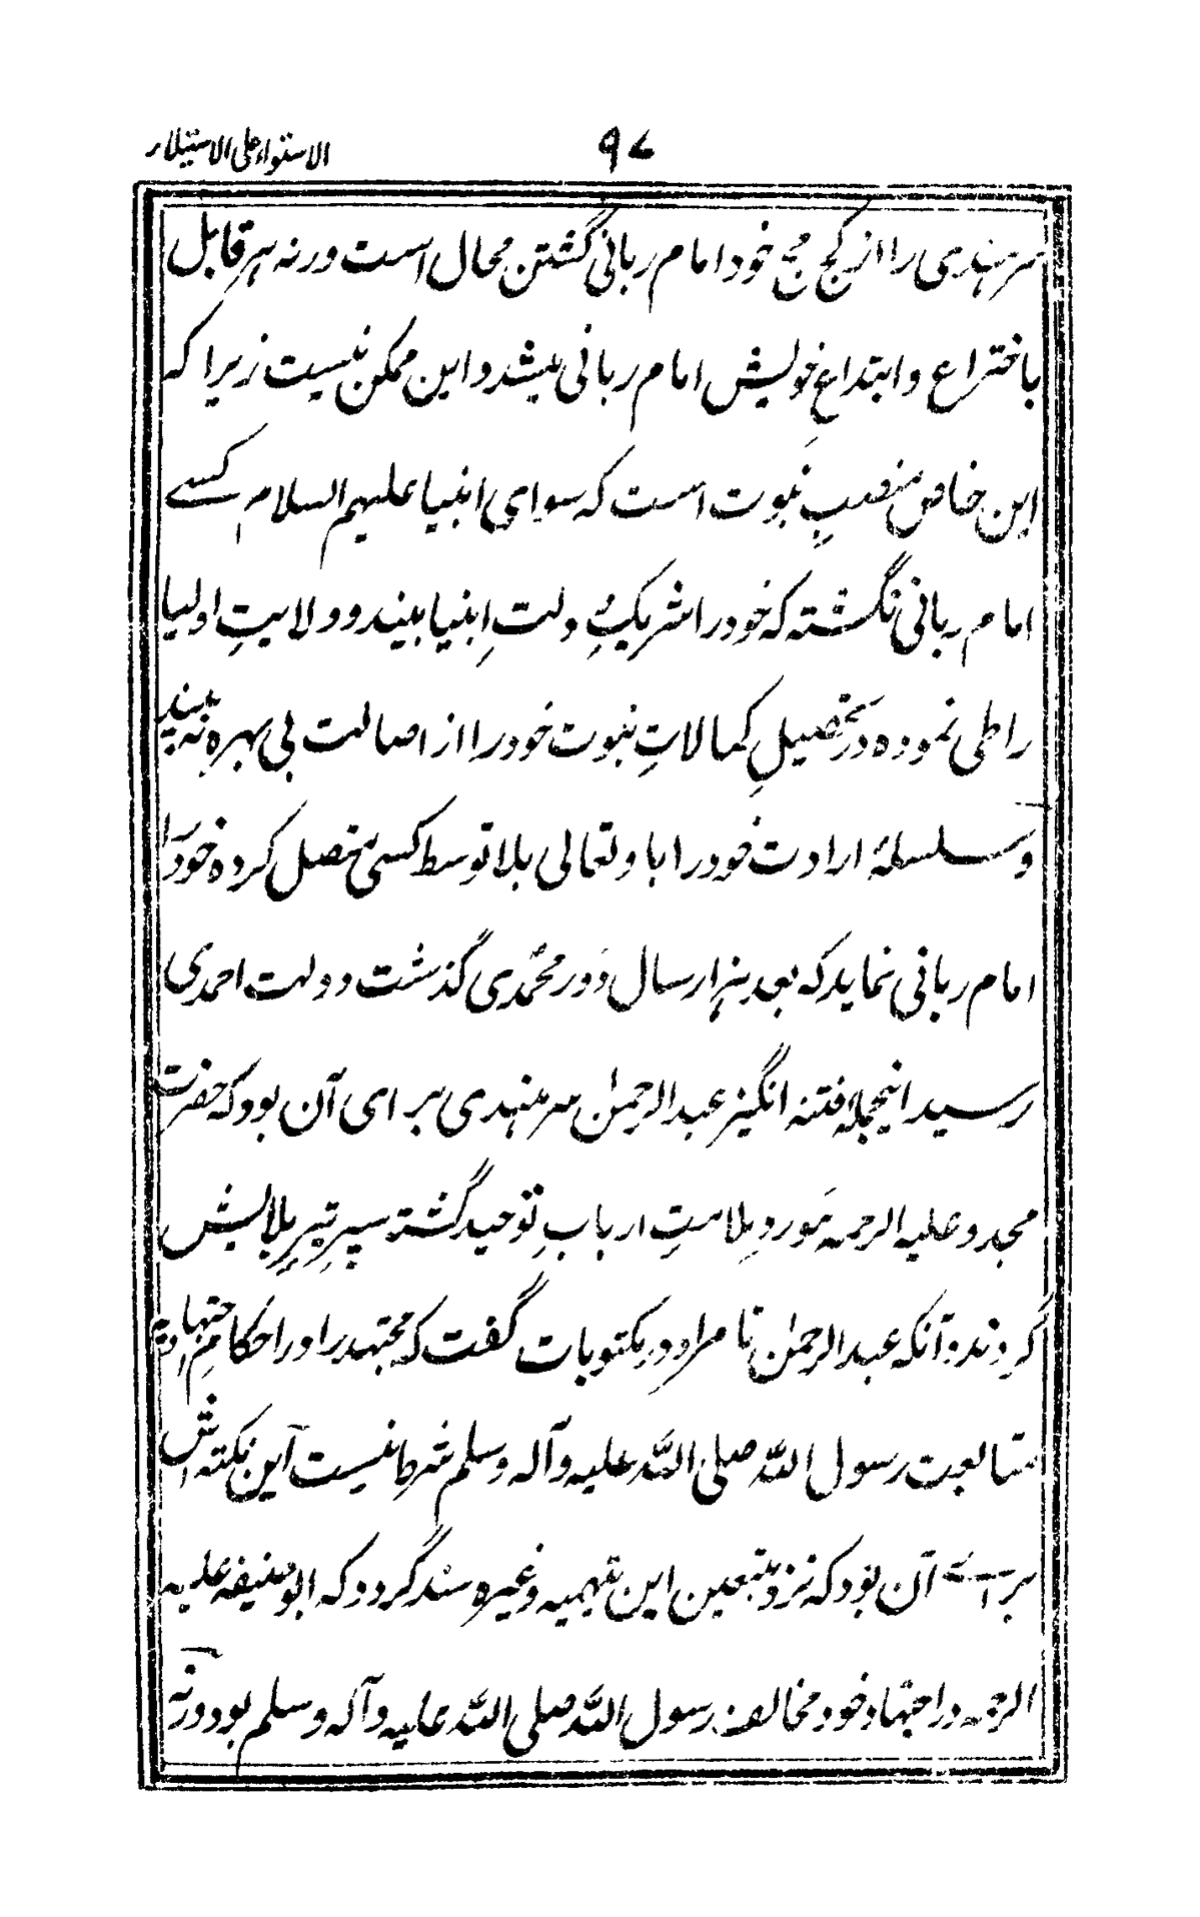 ۹۷
الاستواء علی الاستیلاء
سرہندی را از کج مج خود امام ربانی گشتن محال است ورنہ ہر قابل
باختراع و ابتداع خویش امام ربانی میشد و این ممکن نیست زیرا کہ
این خاص منصبِ نَبوت است کہ سوای انبیا علیہم السلام کسے
امام ربانی نگشتہ کہ خود را شریکِ دولتِ انبیا بیند و ولایتِ اولیا
را طی نمودہ در تحصیلِ کمالاتِ نبوت خود را از اصالت بی بہرہ نہ بیند
و سلسلۂ ارادت خود را با و تعالی بلا توسط کسی متصل کردہ خود را
امام ربانی نماید کہ بعد ہزار سال دَور محمّدی گذشت دولت احمدی
رسید اینجملہ فتنہ انگیز عبدالرحمٰن سرہندی برای آن بود کہ حضرت
مجدد علیہ الرحمہ مَوردِ ملامتِ اربابِ توحید گشتہ سپرِ تیرِ بلایش
گردند و آنکہ عبدالرحمٰن نامراد در مکتوبات گفت کہ مجتہد را در احکامِ اجتہادیہ
متابعت رسول اللّہ صلی اللّہ علیہ وآلہ وسلم شرط نیست این نکتہ اش
براے آن بود کہ نزد متبعین ابن تیمیہ وغیرہ سند گردد کہ ابوحنیفہ علیہ
الرحمہ در اجتہاد خود مخالف رسول اللّہ صلی اللّہ علیہ وآلہ وسلم بود ورنہ